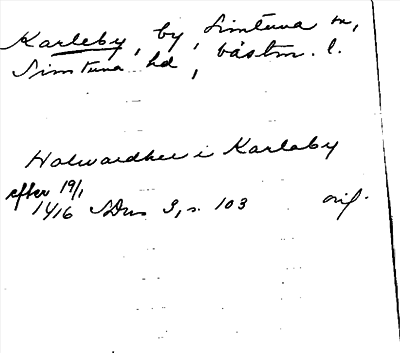 Karleby, by, Simtuna sn,
Simtuna hd, Västm. l.
Halwardhee i Karlaby
efter 19/1
1416 SDns 3, s. 103 orig.